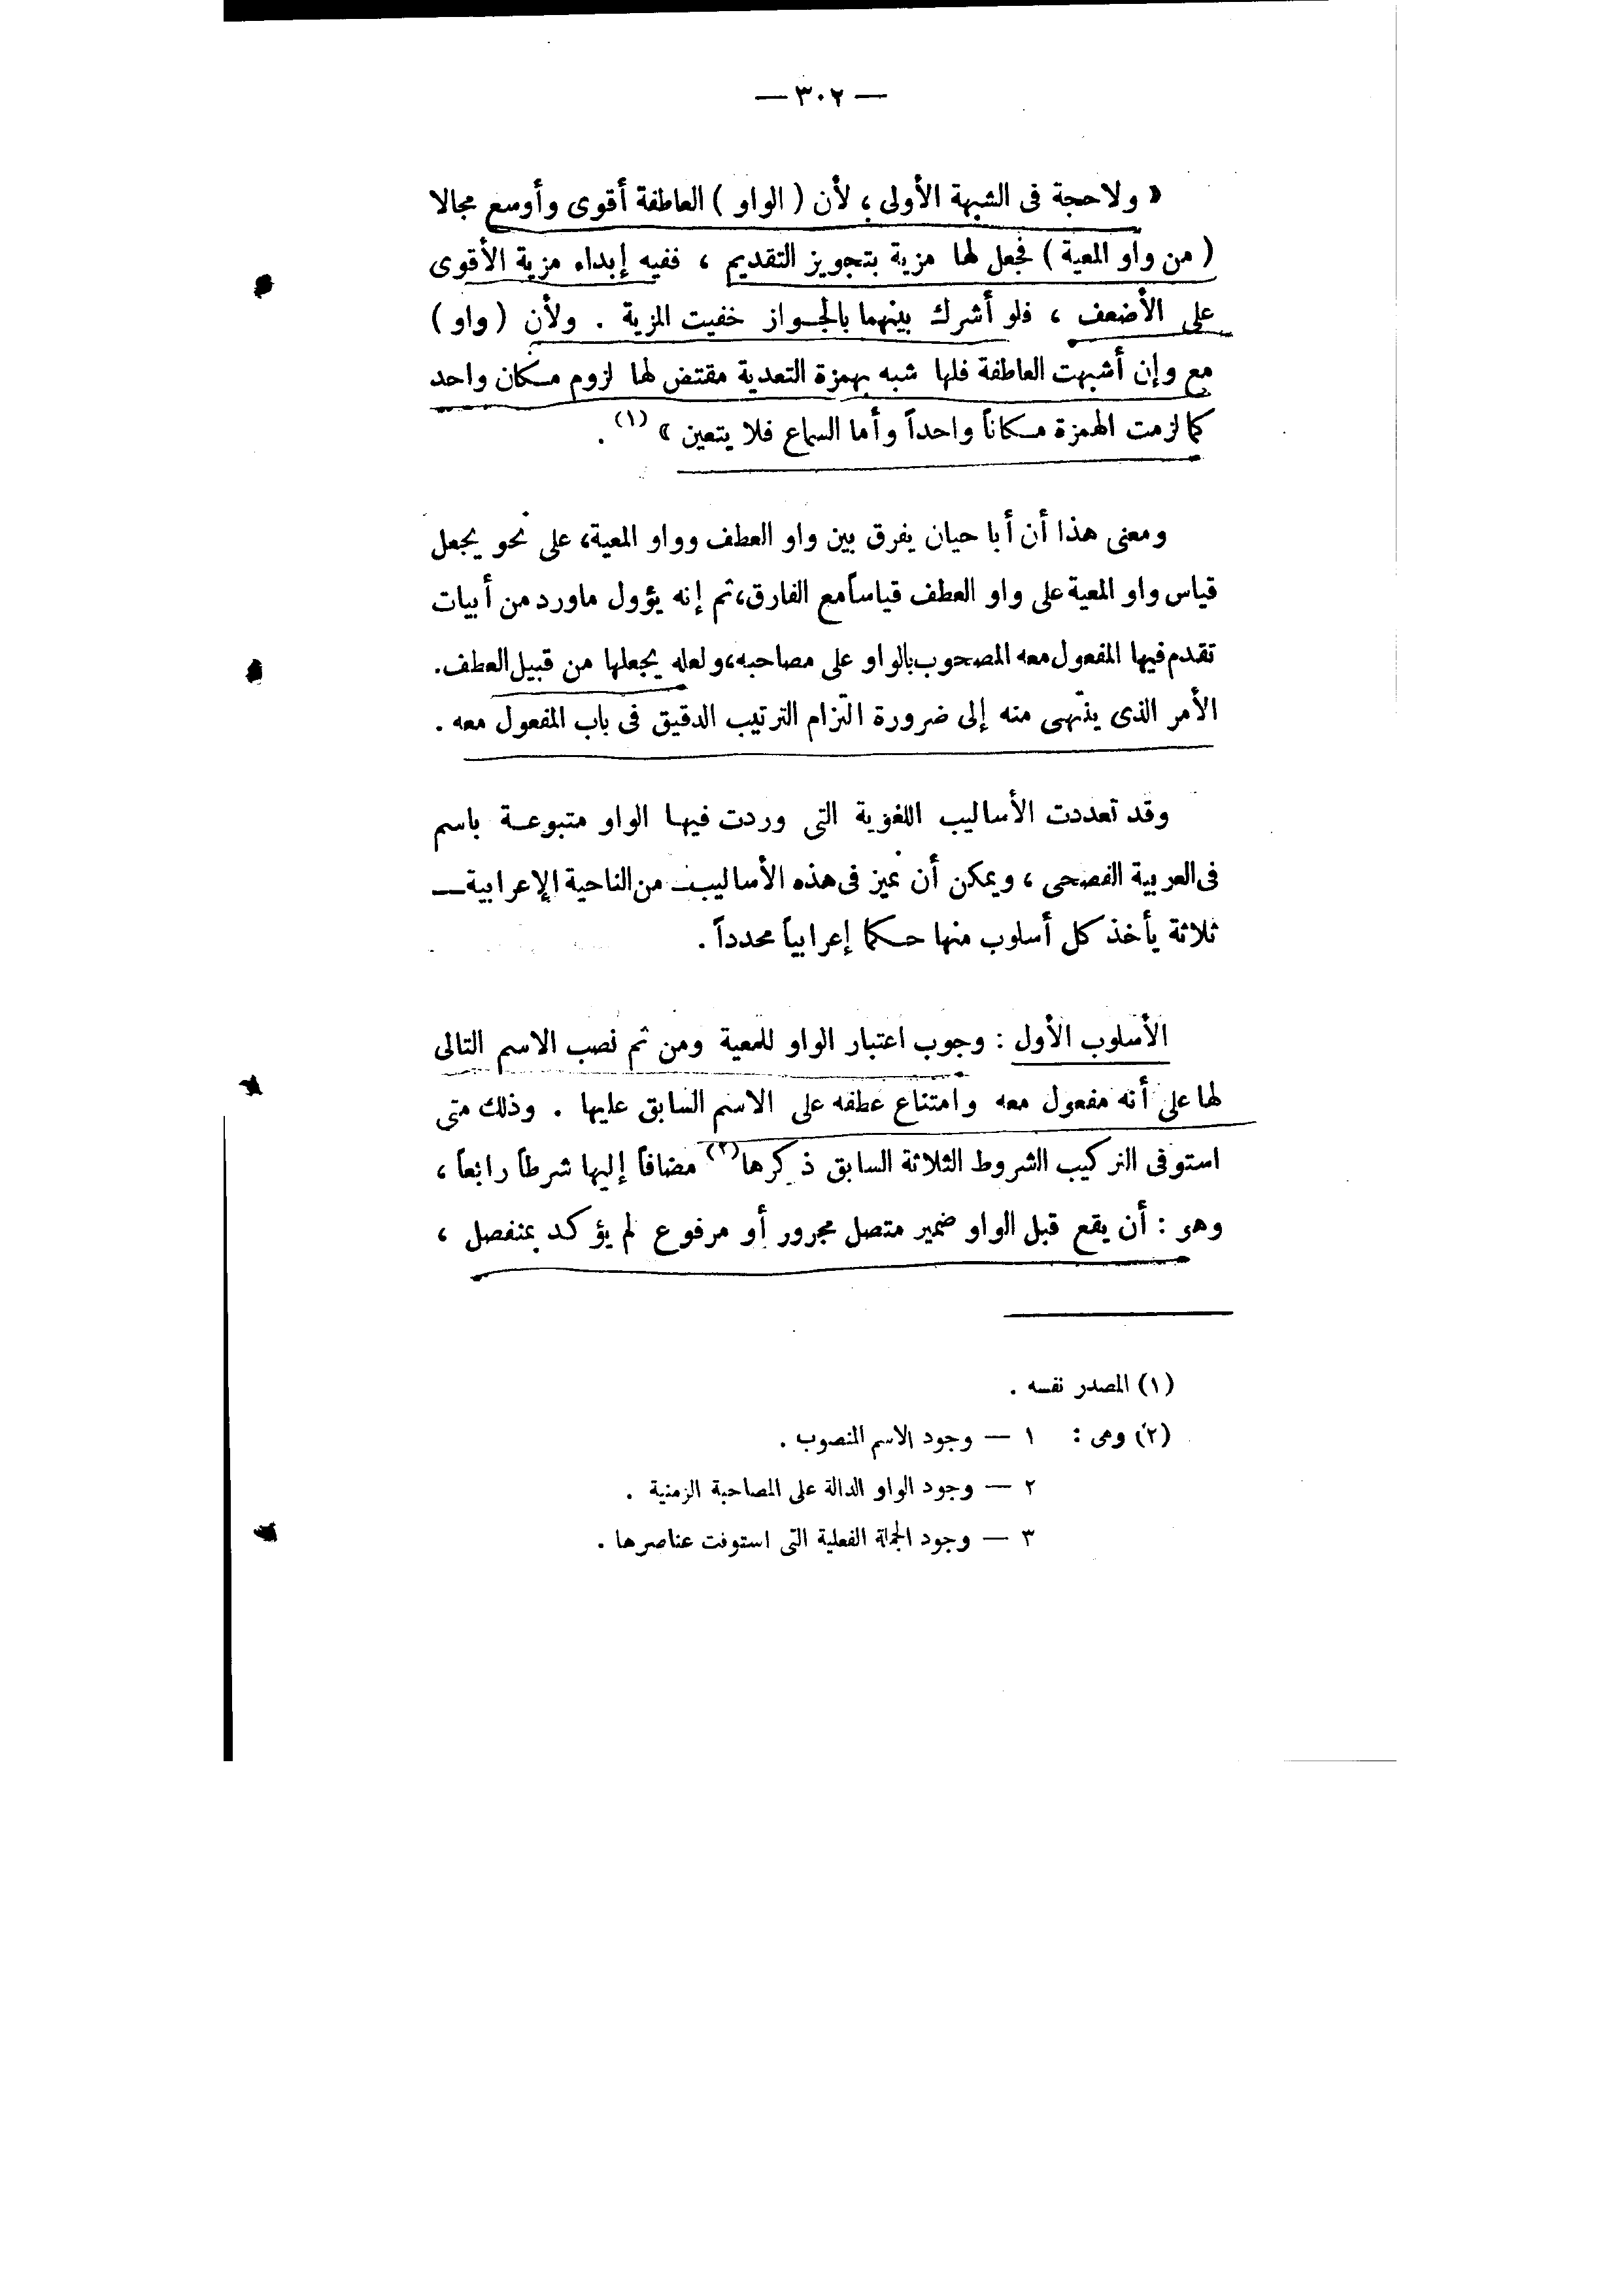 — ٣٠٢ —
« ولاحجة فى الشبهة الأولى ، لأن ( الواو ) العاطفة أقوى وأوسع مجالا
( من واو المعية ) فجعل لها مزية بتجويز التقديم ، ففيه إبداء مزية الأقوى
على الأضعف ، فلو أشرك بينهما بالجواز خفيت المزية . ولأن ( واو )
مع وإن أشبهت العاطفة فلها شبه بهمزة التعدية مقتض لها لزوم مكان واحد
كما لزمت الهمزة مكاناً واحداً وأما السماع فلا يتعين » (١) .
ومعنى هذا أن أبا حيان يفرق بين واو العطف وواو المعية، على نحو يجعل
قياس واو المعية على واو العطف قياساً مع الفارق، ثم إنه يؤول ماورد من أبيات
تقدم فيها المفعول معه المصحوب بالواو على مصاحبه، ولعله يجعلها من قبيل العطف.
الأمر الذى ينتهى منه إلى ضرورة التزام الترتيب الدقيق فى باب المفعول معه .
وقد تعددت الأساليب اللغوية التى وردت فيها الواو متبوعة باسم
فى العربية الفصحى ، ويمكن أن نميز فى هذه الأساليب ـ من الناحية الإعرابية ـ
ثلاثة يأخذ كل أسلوب منها حكما إعرابياً محدداً .
الأسلوب الأول : وجوب اعتبار الواو للمعية ومن ثم نصب الاسم التالى
لها على أنه مفعول معه وامتناع عطفه على الاسم السابق عليها . وذلك متى
استوفى التركيب الشروط الثلاثة السابق ذكرها (٢) مضافاً إليها شرطاً رابعاً ،
وهو : أن يقع قبل الواو ضمير متصل مجرور أو مرفوع لم يؤكد بمنفصل ،
(١) المصدر نفسه .
(٢) وهى : ١ — وجود الاسم المنصوب .
٢ — وجود الواو الدالة على المصاحبة الزمنية .
٣ — وجود الجملة الفعلية التى استوفت عناصرها .